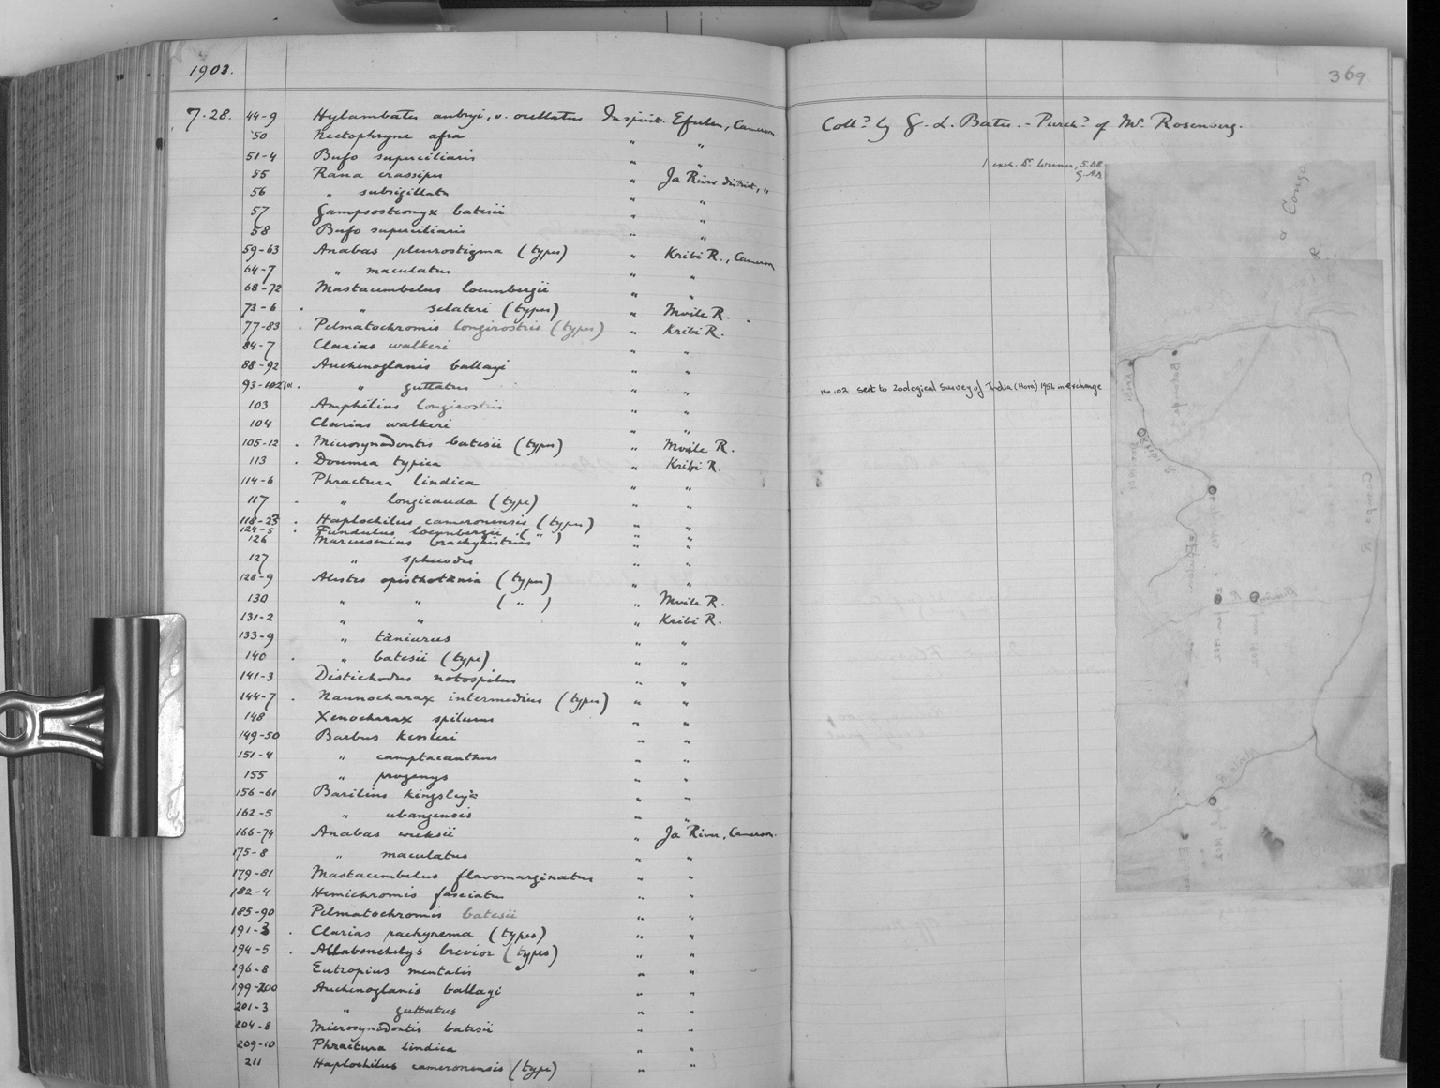 1903.
369
7.28. 44-9 Hylambates aubryi, v. ocellatus In spirit. Efulen, Cameroon Coll.d by G. L. Bates. - Purch.d of Mr. Rosenberg.
50 Nectophryne afra " "
51-4 Bufo superciliaris " "
1 exch. Dr.
55 Rana crassipes " Ja River district, "
56 " subsigillata " "
57 Gampsosteonyx batesii " "
58 Bufo superciliaris " "
59-63 Anabas pleurostigma (types) " Kribi R., Cameroon
64-7 " maculatus " "
68-72 Mastacembelus loennbergii " "
73-6 . " sclateri (types) " Mvile R.
77-83 . Pelmatochromis longirostris (types) " Kribi R.
84-7 Clarias walkeri " "
88-92 Auchenoglanis ballayi " "
93-102 . " guttatus " " no. 102 sent to Zoological Survey of India (Hora) 1956 in exchange
103 Amphilius longirostris " "
104 Clarias walkeri " "
105-12 . Microsynodontis batesii (types) " Mvile R.
113 . Doumea typica " Kribi R.
114-6 Phractura lindica " "
117 . " longicauda (type) " "
118-23 . Haplochilus cameronensis (types) " "
124-5 . Fundulus loennbergii ( " ) " "
126 Marcusenius brachyhistius " "
127 " sphecodes " "
128-9 Alestes opisthotaenia (types) " "
130 " " ( " ) " Mvile R.
131-2 " " " Kribi R.
133-9 " taniurus " "
140 . " batesii (type) " "
141-3 Distichodus notospilus " "
144-7 . Nannocharax intermedius (types) " "
148 Xenocharax spilurus " "
149-50 Barbus kessleri " "
151-4 " camptacanthus " "
155 " progenys " "
156-61 Barilius kingsleyæ " "
162-5 " ubangensis " "
166-74 Anabas weeksii " Ja River, Cameroon.
175-8 " maculatus " "
179-81 Mastacembelus flavomarginatus " "
182-4 Hemichromis fasciatus " "
185-90 Pelmatochromis batesii " "
191-3 . Clarias pachynema (types) " "
194-5 . Allabenchelys brevior (types) " "
196-8 Eutropius mentalis " "
199-200 Auchenoglanis ballayi " "
201-3 " guttatus " "
204-8 Microsynodontis batesii " "
209-10 Phractura lindica " "
211 Haplochilus cameronensis (type) " "